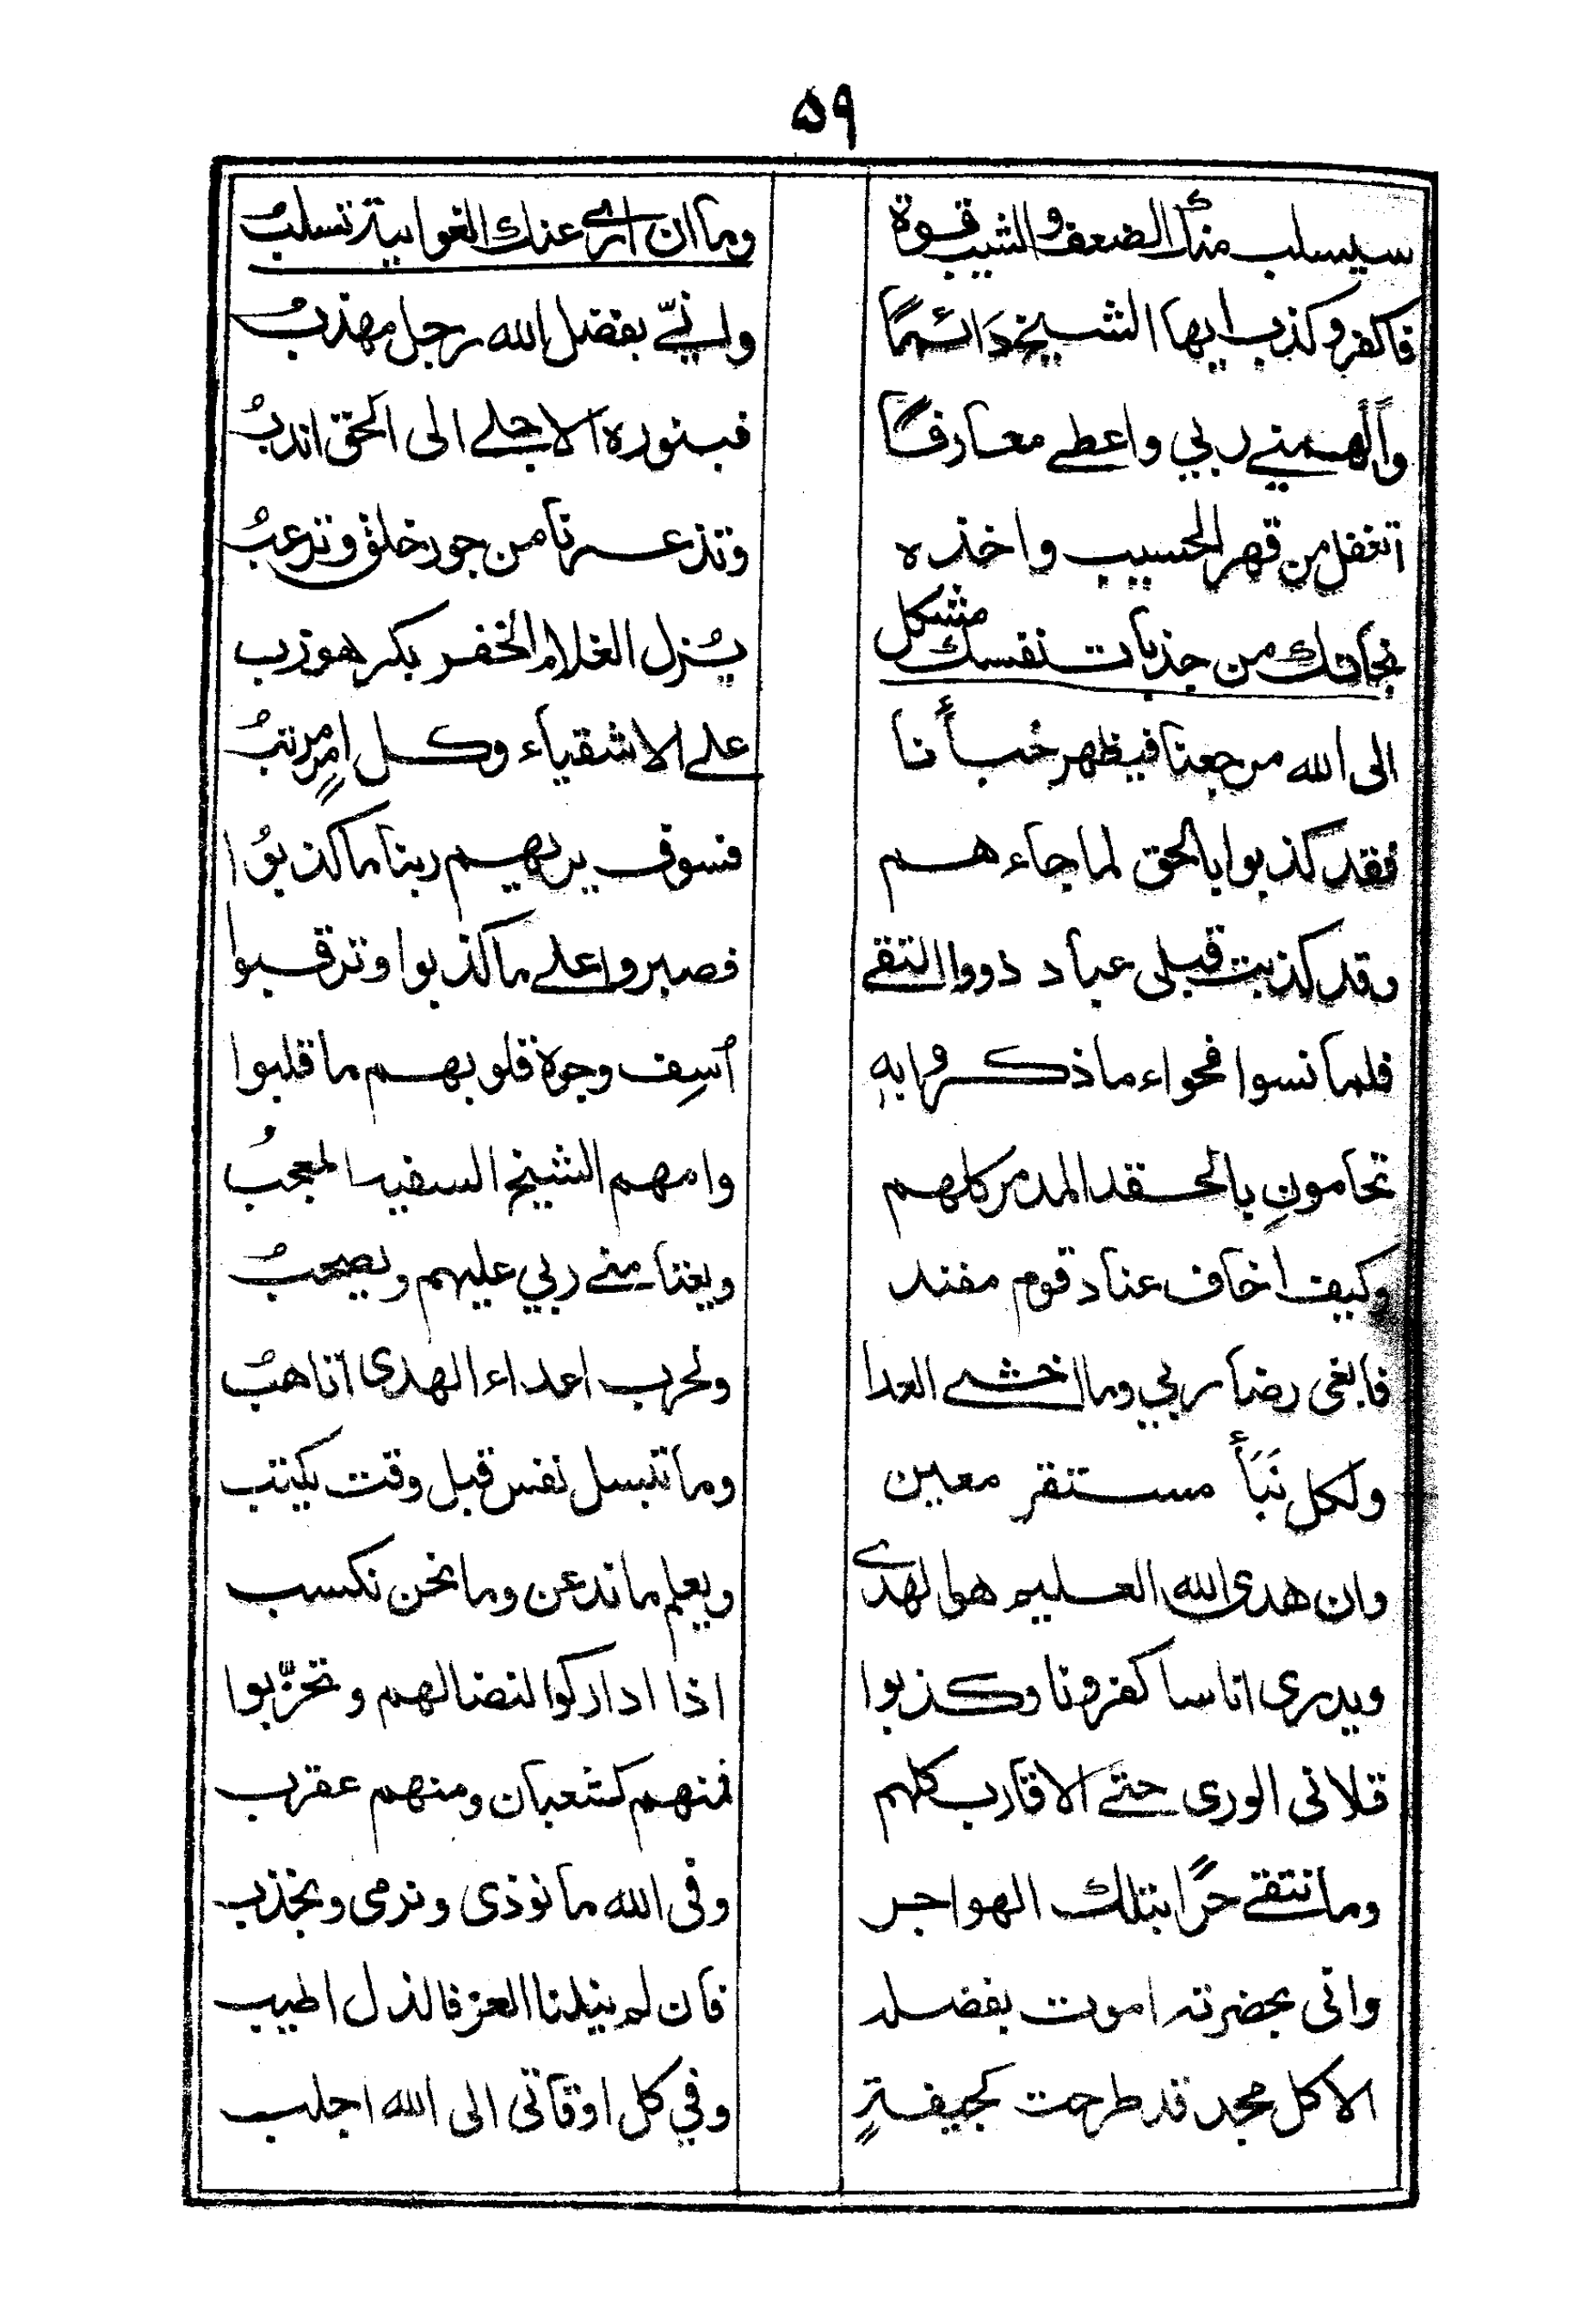 ۵۹
سيسلب منك الضعف والشيب قوة وما ان ارى عنك الغواية تسلبُ
فاكفر وكذب ايها الشيخ دَائمًا وانيّ بفضل الله رجل مهذبُ
وأَلهمنے ربي واعطے معارفًا فبنوره الاجلے الى الحق اندبُ
اتغفل من قهر الحسيب واخذه وتذعرنا من جور خلق وترعبُ
نجاتك من جذبات نفسك مشكل يُنزل الغلام الخفر بكر هوزب
الى الله مرجعنا فيظهر خُبأَنا علے الاشقياء وكل امرٍ مرتبُ
فقد كذبوا بالحق لما جاءهم فسوف يريهم ربنا ما كذبوُا
وقد كذبت قبلى عباد ذووا التقے فصبروا علے ما كذبوا وترقبوا
فلما نسوا فحواء ما ذكروا بهٖ اُسِف وجوه قلوبهم ما قلبوا
تحامونِ بالحقد المدمر كلهم وامهم الشيخ السفيه المعجبُ
وكيف اخاف عناد قوم مفند ويغتامنے ربي عليهم ويصحبُ
فابغى رضا ربي وما اخشے العدا ولحرب اعداء الهدى اتاهبُ
ولكل نَبَأٍ مستقر معين وما تبسل نفس قبل وقت يكتب
وان هدى الله العليم هو الهدى ويعلم ما ندعن وما نحن نكسب
ويدرى اناسا كفرونا وكذبوا اذا اداركوا لنضالهم وتحزّبوا
قلانى الورى حتے الاقارب كلهم فمنهم كثعبان ومنهم عقرب
وما نتقے حرًّا بتلك الهواجر وفى الله ما نوذى ونرمى ونجذب
وانى بحضرته اموت بفضله فان لم ينلنا العز فالذل اطيب
الا كل مجد قد طرحت كجيفةٍ وفي كل اوقاتى الى الله اجلب